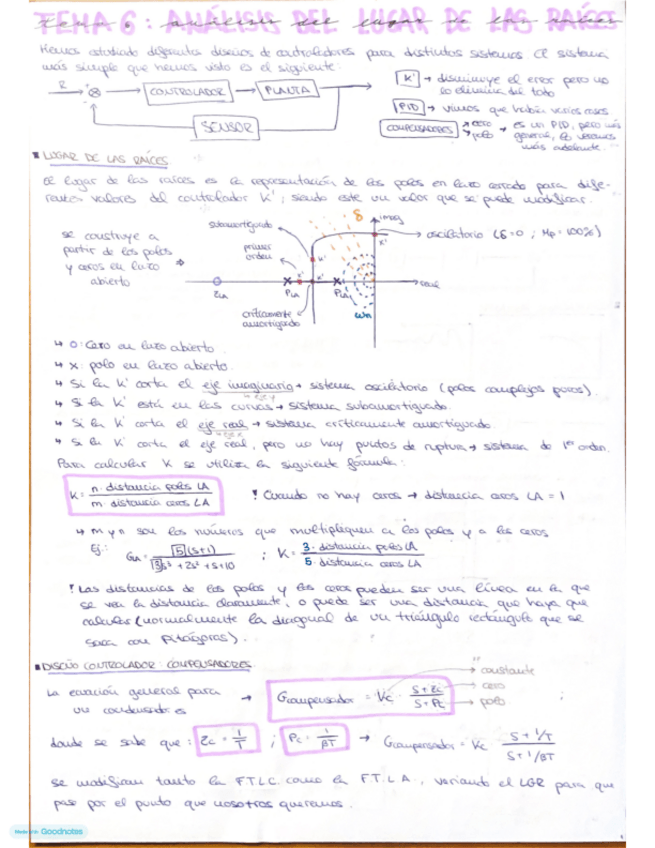 TEMA 6: ANÁLISIS DEL LUGAR DE LAS RAÍCES
Hemos estudiado diferentes diseños de controladores para distintos sistemas. El sistema
más simple que hemos visto es el siguiente:
R
+
-
CONTROLADOR
PLANTA
SENSOR
K' → disminuye el error pero no
lo elimina del todo
PID → vimos que habían varios casos
COMPENSADORES
cero
polo
→ es un PID, pero más
general, lo veremos
más adelante.
LUGAR DE LAS RAÍCES
El lugar de las raíces es la representación de los polos en lazo cerrado para dife-
rentes valores del controlador K', siendo este un valor que se puede modificar.
se construye a
partir de los polos
y ceros en lazo
abierto
⇒
subamortiguado
primer
orden
críticamente
amortiguado
δ
imag
oscilatorio (δ=0 ; Mp=100%)
K'
real
ZLA
PLA
PLA
ωn
↳ O: Cero en lazo abierto.
↳ X: polo en lazo abierto.
↳ Si la K' corta el eje imaginario → sistema oscilatorio (polos complejos puros).
↳ eje y
↳ Si la K' está en las curvas → sistema subamortiguado.
↳ Si la K' corta el eje real → sistema críticamente amortiguado.
↳ eje x
↳ Si la K' corta el eje real, pero no hay puntos de ruptura → sistema de 1er orden.
Para calcular K se utiliza la siguiente fórmula:
K = n · distancia polos LA / m · distancia ceros LA
! Cuando no hay ceros → distancia ceros LA = 1
↳ m y n son los números que multipliquen a los polos y a los ceros
Ej.: GLA = 5(s+1) / 3s³ + 2s² + s + 10 ; K = 3 · distancia polos LA / 5 · distancia ceros LA
! Las distancias de los polos y los ceros pueden ser una línea en la que
se vea la distancia claramente, o puede ser una distancia que haya que
calcular (normalmente la diagonal de un triángulo rectángulo que se
saca con Pitágoras).
DISEÑO CONTROLADOR: COMPENSADORES
La ecuación general para
un condensador es
→ Gcompensador = Kc · S + Zc / S + Pc
constante
cero
polo
donde se sabe que: Zc = 1/T ; Pc = 1/βT → Gcompensador = Kc S + 1/T / S + 1/βT
se modifican tanto la F.T.L.C. como la F.T.L.A., variando el LGR para que
pase por el punto que nosotros queramos.
Made with Goodnotes